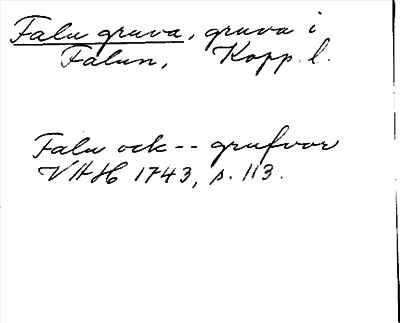 Falu gruva, gruva i
Falun, Kopp. l.
Falu ock -- grufvor
VAH 1743, s. 113.